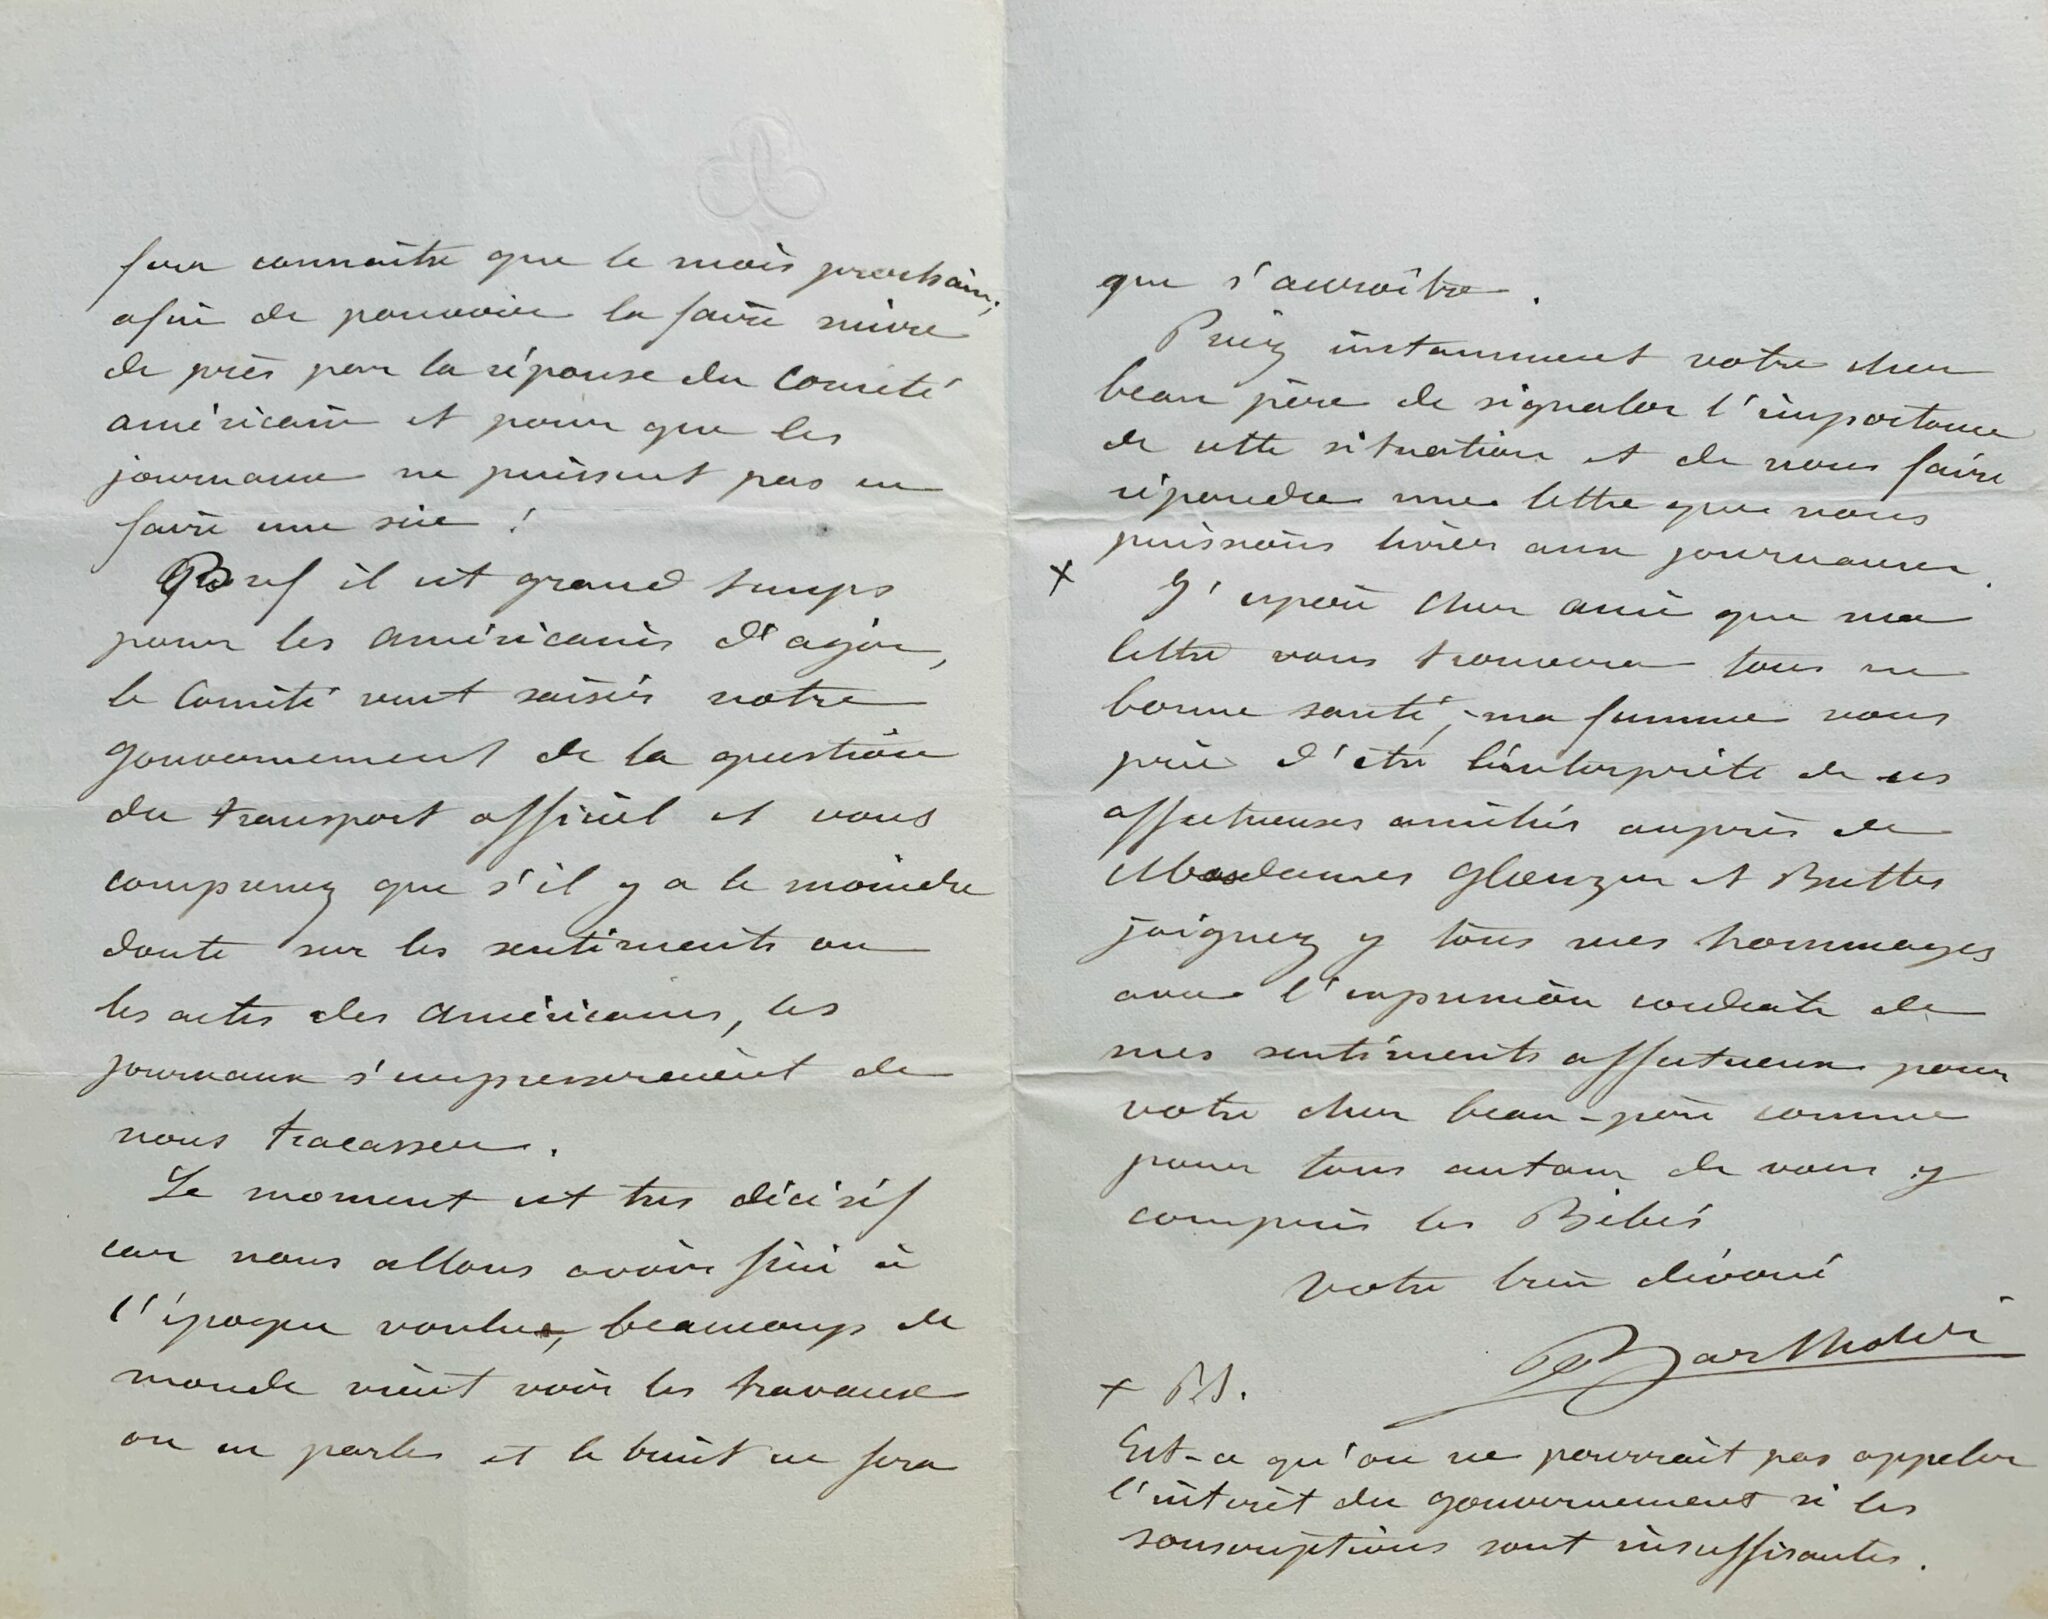 fera connaître que le mois prochain,
afin de pouvoir la faire suivre
de près par la réponse du Comité
américain et pour que les
journaux ne puissent pas en
faire une scie !
Bref il est grand temps
pour les américains d'agir,
le Comité veut saisir notre
gouvernement de la question
du transport officiel et vous
comprenez que s'il y a le moindre
doute sur les sentiments ou
les actes des américains, les
journaux s'empresseraient de
nous tracasser.
Le moment est très décisif
car nous allons avoir fini à
l'époque voulue, beaucoup de
monde vient voir les travaux
on en parle et le bruit ne fera
que s'accroître.
Priez instamment votre cher
beau père de signaler l'importance
de cette situation et de nous faire
répondre une lettre que nous
puissions livrer aux journaux.
x J'espère cher ami que ma
lettre vous trouvera tous en
bonne santé, ma femme vous
prie d'être l'interprète de ses
affectueuses amitiés auprès de
Mesdames Glaenzer et Buttes
joignez y tous mes hommages
avec l'expression cordiale de
mes sentiments affectueux pour
votre cher beau-père comme
pour tous autour de vous y
compris les Bébés
votre bien dévoué
Bartholdi
x P.S.
Est-ce qu'on ne pourrait pas appeler
l'intérêt du gouvernement si les
souscriptions sont insuffisantes.